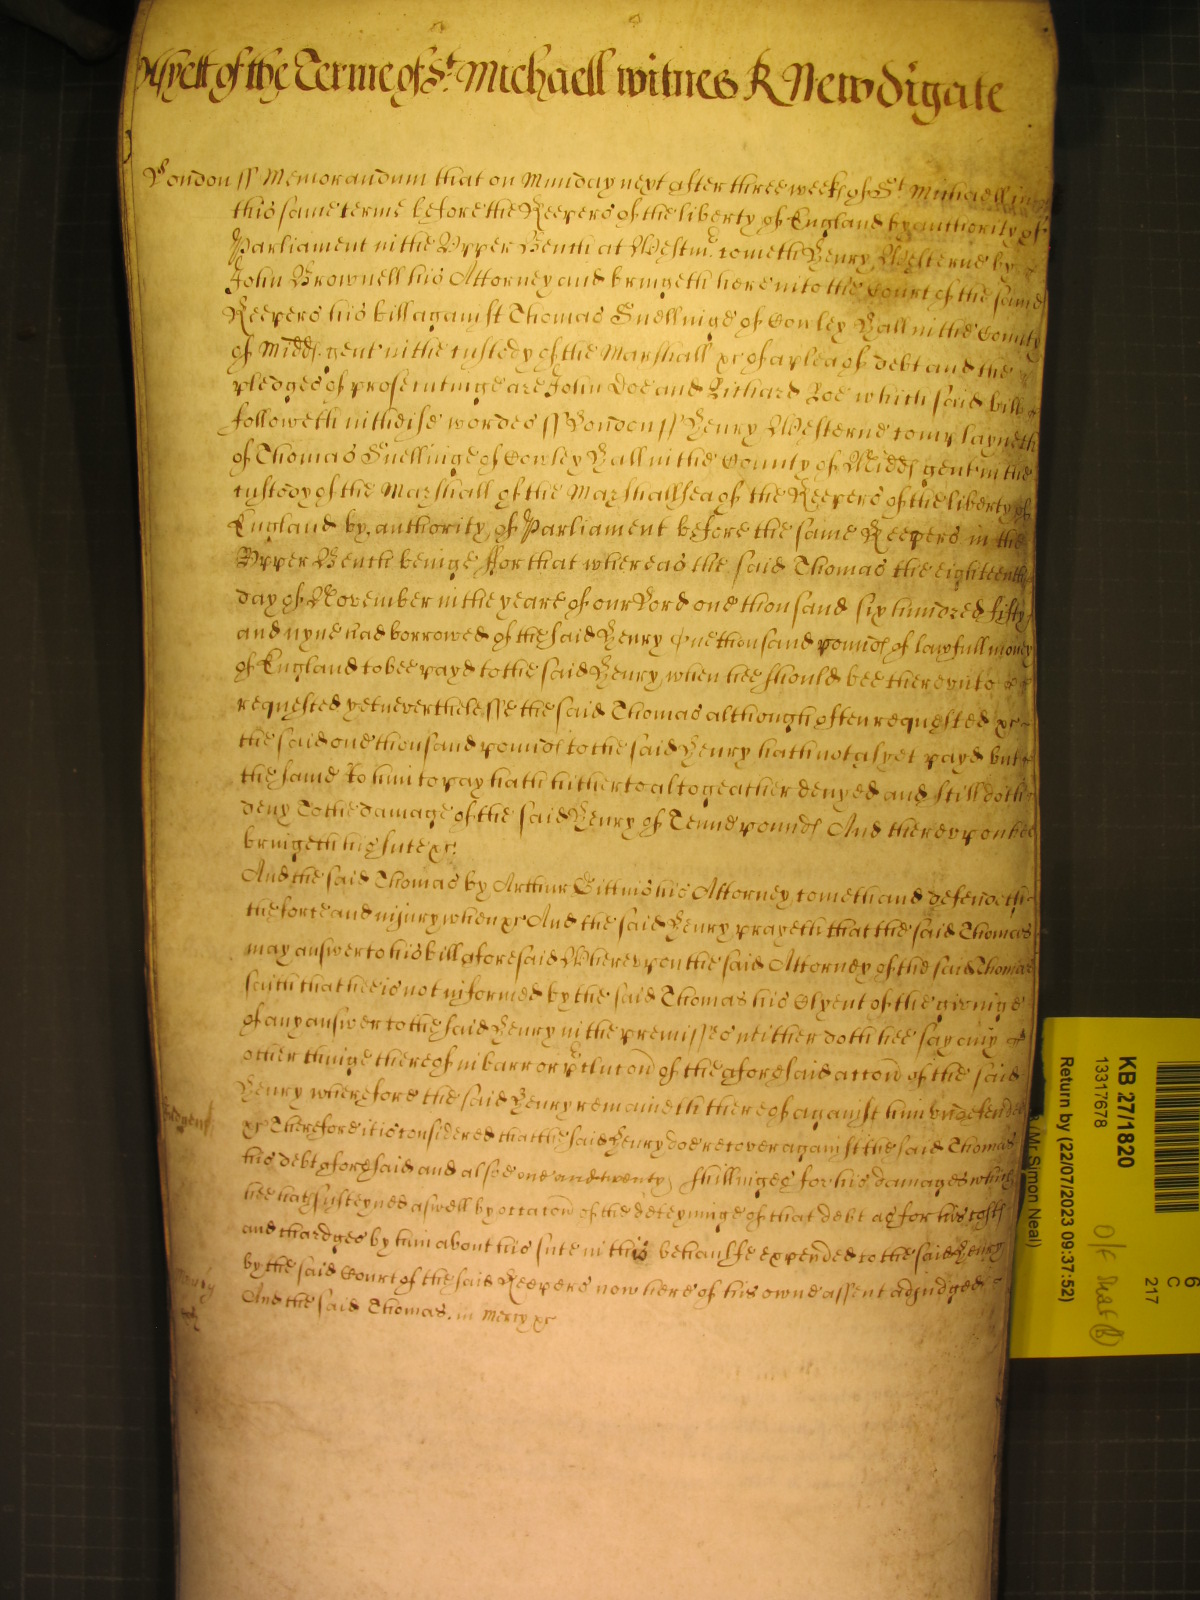 of the Terme of St. Michaell witnes R Newdigate
London ss Memorandum that on Munday next after three weekes of St Michaell in
this same terme before the Keepers of the liberty of England by authority of
Parliament in the Upper Bench at Westmr. cometh Henry Westerne by
John Brownell his Attorney and bringeth here into the Court of the same
Keepers his bill against Thomas Snellinge of Cowley Hall in the County
of Midds. gent in the custody of the Marshall &c of a plea of debt and the
pledges of prosecutinge are John Doe and Richard Roe which said bill
followeth in theise wordes ss London ss Henry Westerne complayneth
of Thomas Snellinge of Cowley Hall in the County of Midds gent in the
custody of the Marshall of the Marshallsea of the Keepers of the liberty of
England by authority of Parliament before the same Keepers in the
Upper Bench beinge ffor that whereas the said Thomas the eighteenth
day of November in the yeare of our Lord one thousand six hundred fifty
and nyne had borrowed of the said Henry One thousand pounds of lawfull money
of England to bee payd to the said Henry when hee should bee thereunto
requested yet neverthelesse the said Thomas although often requested &c
the said one thousand pounds to the said Henry hath not as yet payd but
the same to him to pay hath hitherto altogeather denyed and still doth
deny To the damage of the said Henry of Tenne pounds And thereupon hee
bringeth his sute &c.
And the said Thomas by Arthur Gittins his Attorney cometh and defendeth
the force and injury when &c And the said Henry prayeth that the said Thomas
may answer to his bill aforesaid Whereupon the said Attorney of the said Thomas
saith that hee is not informed by the said Thomas his Clyent of the giveinge
of any answer to the said Henry in the premisses neither doth hee say any
other thinge thereof in barr or preclucon of the aforesaid accon of the said
Henry wherefore the said Henry remaineth thereof against him undefended
Judgent
&c Therefore it is considered that the said Henry doe recover against the said Thomas
his debt aforesaid and alsoe one and twenty shillinges for his damages which
hee hath susteyned aswell by occacon of the deteyninge of that debt as for his costs
and chardges by him about his sute in this behaulfe expended to the said Henry
by the said Court of the said Keepers now here of his owne assent adjudged
Mercy
And the said Thomas in mercy &c
KB 27/1820
13317678
Return by (22/07/2023 09:37:52)
(Mr Simon Neal)
6
C
217